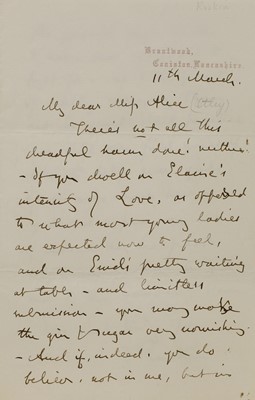 Brantwood,
Coniston, Lancashire.
11th March.
My dear Miss Alice
There's not all this
dreadful harm done! neither!
- If you dwell on Elaine's
intensity of Love, as opposed
to what most young ladies
are expected now to feel,
and on Enid's pretty waiting
at table - and limitless
submission - you may make
the gin & sugar very nourishing.
- And if, indeed, you do
believe, not in me, but in